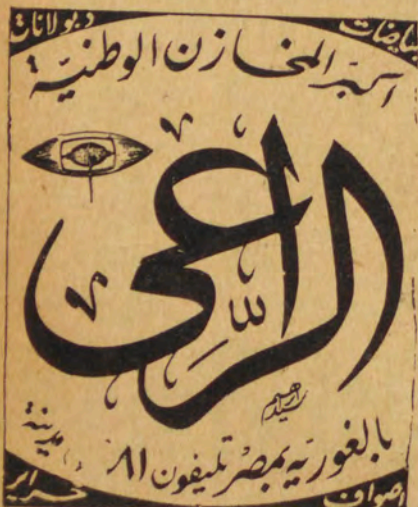 بياضات
دبولانات
أكبر المخازن الوطنية
الراعى
لله
سيد ابراهيم
بالغورية بمصر تليفون ٨١ مدينة
أصواف
حراير